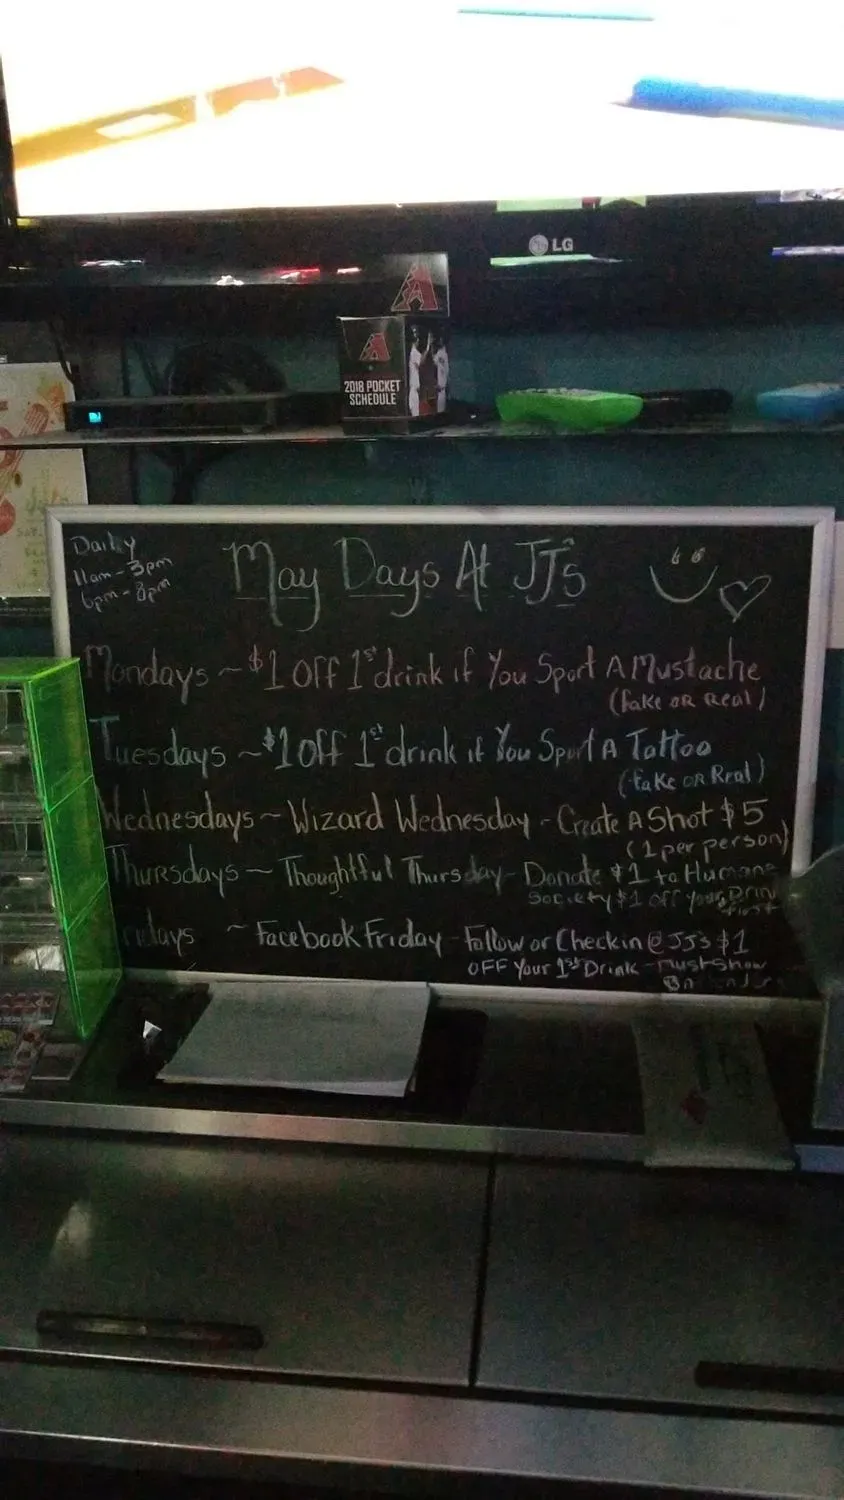 LG
A
A
2018 POCKET
SCHEDULE
Daily
11am - 3pm
6pm - 8pm
May Days At JJ's
Mondays ~ $1 Off 1st drink if You Sport A Mustache
(fake or Real)
Tuesdays ~ $1 Off 1st drink if You Sport A Tattoo
(fake or Real)
Wednesdays ~ Wizard Wednesday - Create A Shot $5
(1 per person)
Thursdays ~ Thoughtful Thursday - Donate $1 to Humane
Society $1 off your Drin
first
ridays ~ Facebook Friday - Follow or Checkin @ JJ's $1
OFF Your 1st Drink - Must Show